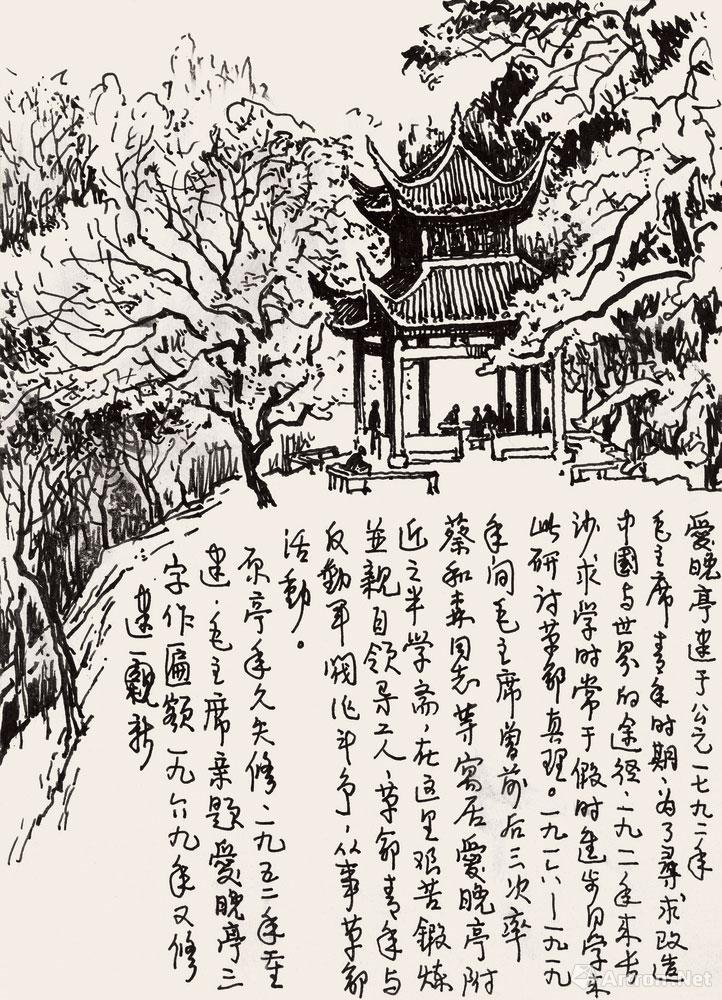 愛晚亭建于公元一七九二年
毛主席青年时期、为了尋求改造
中國与世界的途径、一九一一年来长
沙求学时常于假时進步同学来
此研讨革命真理。一九一六—一九一九
年间毛主席曾前后三次率
蔡和森同志等寓居愛晚亭附
近之半学斋、在这里艰苦鍛炼
並親自领导工人、革命青年与
反動军阀作斗争、从事革命
活動。
原亭年久失修、一九五二年重
建、毛主席亲题愛晚亭三
字作匾额一九六九年又修
建一新
Artron.Net